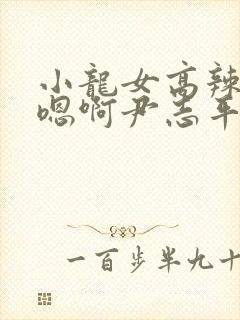 小龍女高辣
嗯啊尹志平
一百步半九十